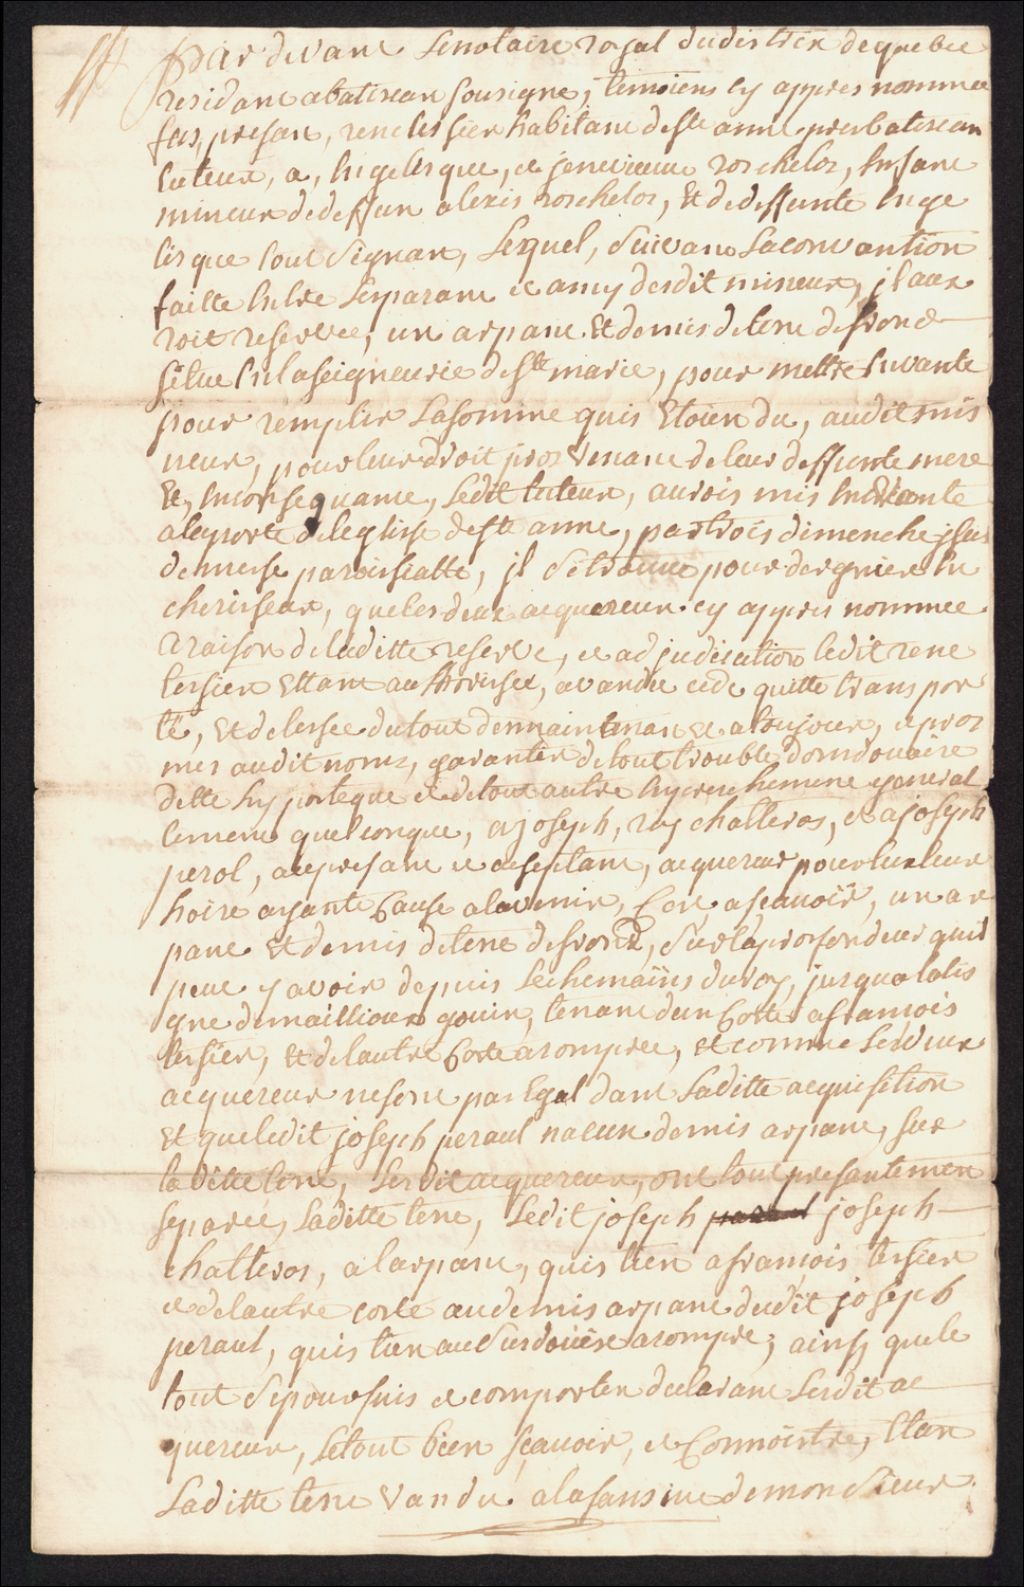 pardevant Le notaire royal dudistrix dequebec
residant abatiscan sousigne, temoiens cy appres nommee
fus, presan, rene tessier habitant de Ste anne pres batiscan
tuteur, a, engelisque, et jenevieuve rochelor, enfant
mineur dedeffun alexis rochelor, Et dedeffunte enge
lisque tout Signan, Lequel, Suivans La conv antion
faitte entre Les parant et amy desdit mineur, jl aux
roit reservee, un arpant Et demis de tere defrond
situe en la seigneurie de Ste marie, pour mettre envante
pour remplir La somme quis Etoien du, audit mis
neur, pour leur droit pro Venant de leur deffunte mere
Et, enconsequance, Ledit tuteur, aurois mis en vante
alaporte del eglise de ste anne, par trois dimenche jssus
de messe paroissialle, jl Se trouve pour dergnier en
cherisseur, que les deux acquereur cy appres nommee
a raison de laditte reserve, et adjudication ledit rene
tessier Ettant authorisee, a vandu cede quitte transpor
té, Et delessee du tout demaintenan Et a toujour, et pro
mis audit noms, garantir de tout trouble don douaire
dette hy porteque et de tout autre enpeschement general
lement quelconque, a joseph, roy chatteros, et a joseph
perol, acepresant et aceptant, acquereur pour eux leur
hoire ayante Cause alavenir, C'est, ascauoir, un ar
pant Et demis de tere de frond, Sur la profondeur quil
peut y avoir depuis Le chemains du roy, jusqua la lis
gne de maillioux gouin, tenant dun Cotte a francois
tessier, Et de l autre Cotte a rompree, et comme Les deux
acquereur ne sont pas Egal dans Laditte acquisition
Et que ledit joseph peraul na eun demis arpant, sur
laditte tere, Lesdit acquereur, ont tout presantement
separee, Laditte tere, Ledit joseph joseph
chatteros, a larpant, quis tien a francois tessier
et de l autre coste au demis arpant dudit joseph
peraul, quis tien au Sus douiere arompre; ainsy quele
tout Se poursuis et comporter declarant Lesdit ac
quereur, Le tout bien scauoir, et Connointre, Etan
Laditte tere Vandu ala sansive de monsieur